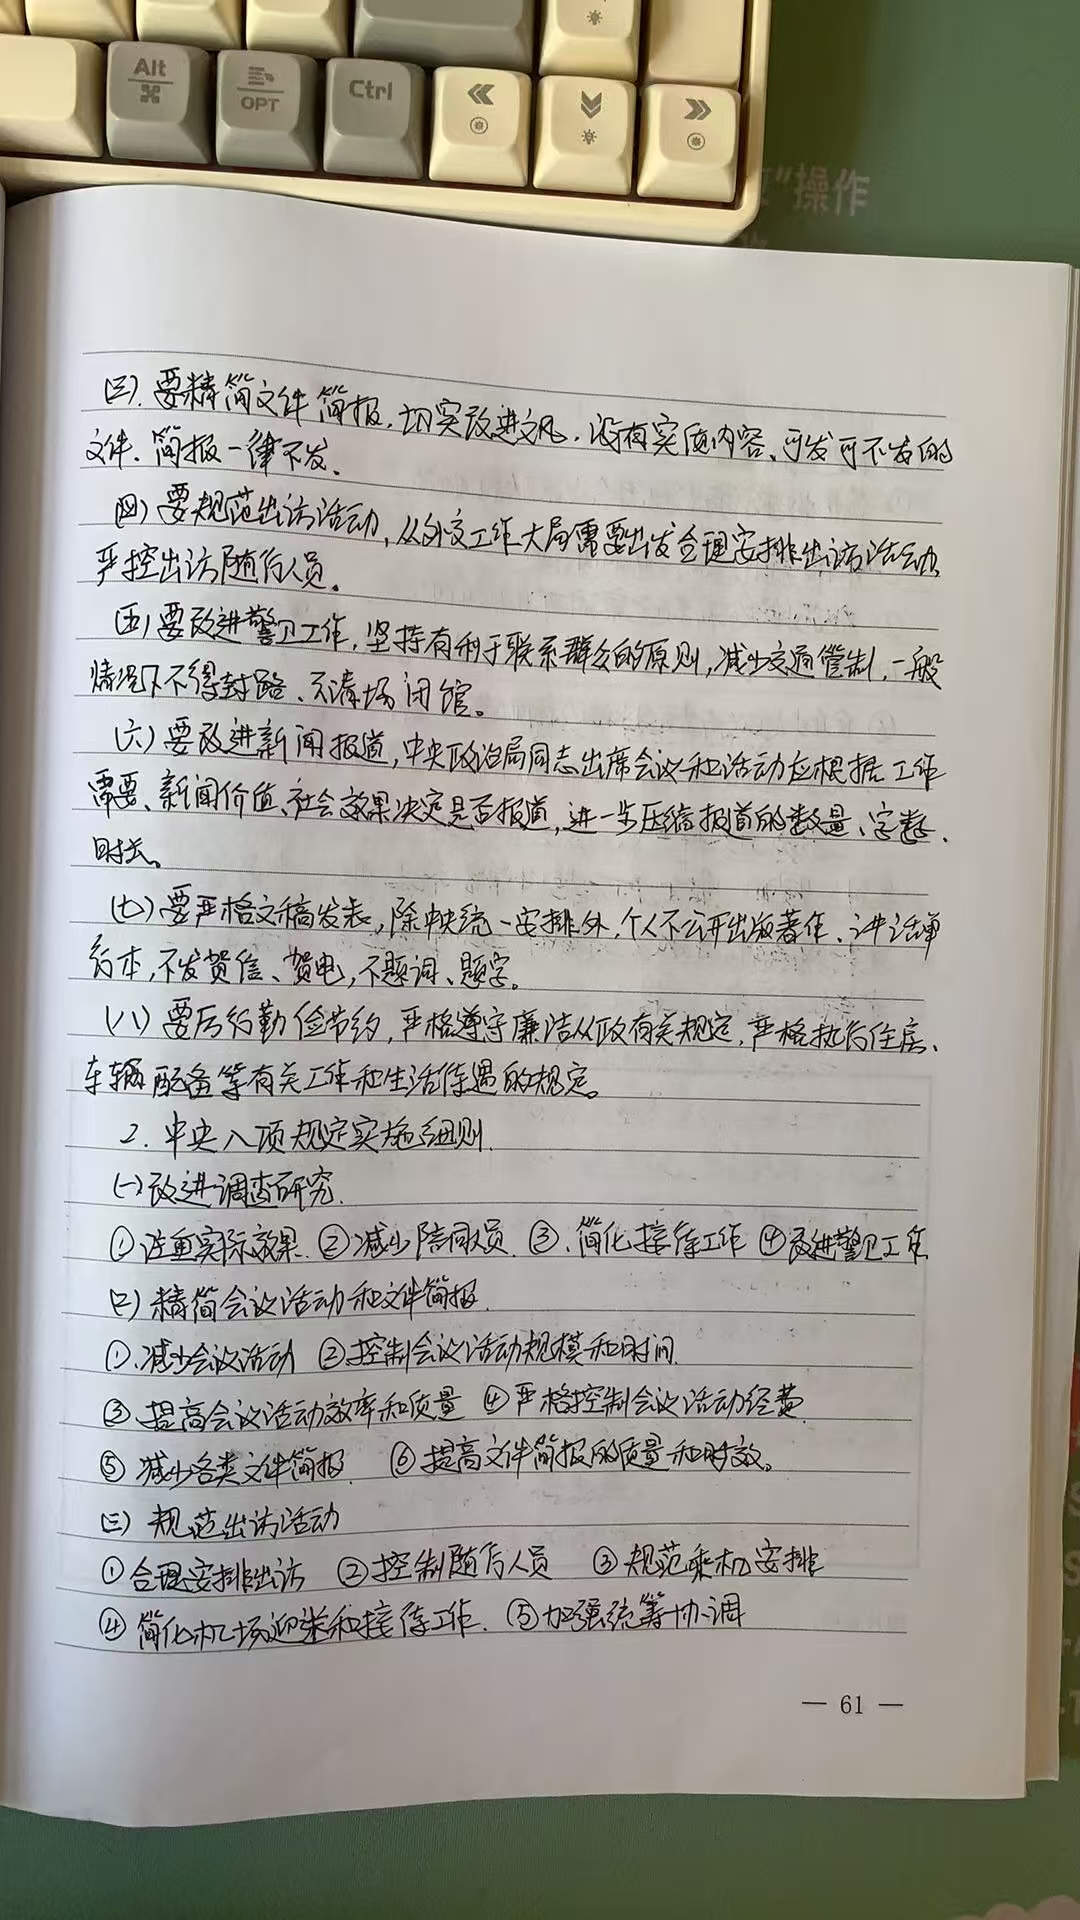 Alt
OPT
Ctrl
"操作
(三).要精简文件简报,切实改进文风,没有实质内容、可发可不发的
文件、简报一律不发。
(四)要规范出访活动,从外交工作大局需要出发合理安排出访活动,
严控出访随行人员。
(五)要改进警卫工作,坚持有利于联系群众的原则,减少交通管制,一般
情况下不得封路、不清场闭馆。
(六)要改进新闻报道,中央政治局同志出席会议和活动应根据工作
需要、新闻价值、社会效果决定是否报道,进一步压缩报道的数量、字数、
时长。
(七)要严格文稿发表,除中央统一安排外,个人不公开出版著作、讲话单
行本,不发贺信、贺电,不题词、题字。
(八)要厉行勤俭节约,严格遵守廉洁从政有关规定,严格执行住房、
车辆配备等有关工作和生活待遇的规定。
2.中央八项规定实施细则.
(一)改进调查研究.
①注重实际效果.②减少陪同人员.③.简化接待工作 ④改进警卫工作
(二)精简会议活动和文件简报.
①.减少会议活动 ②控制会议活动规模和时间.
③.提高会议活动效率和质量 ④严格控制会议活动经费.
⑤减少各类文件简报. ⑥提高文件简报的质量和时效。
(三)规范出访活动
①合理安排出访 ②控制随行人员 ③规范乘机安排
④简化机场迎送和接待工作. ⑤加强统筹协调
— 61 —